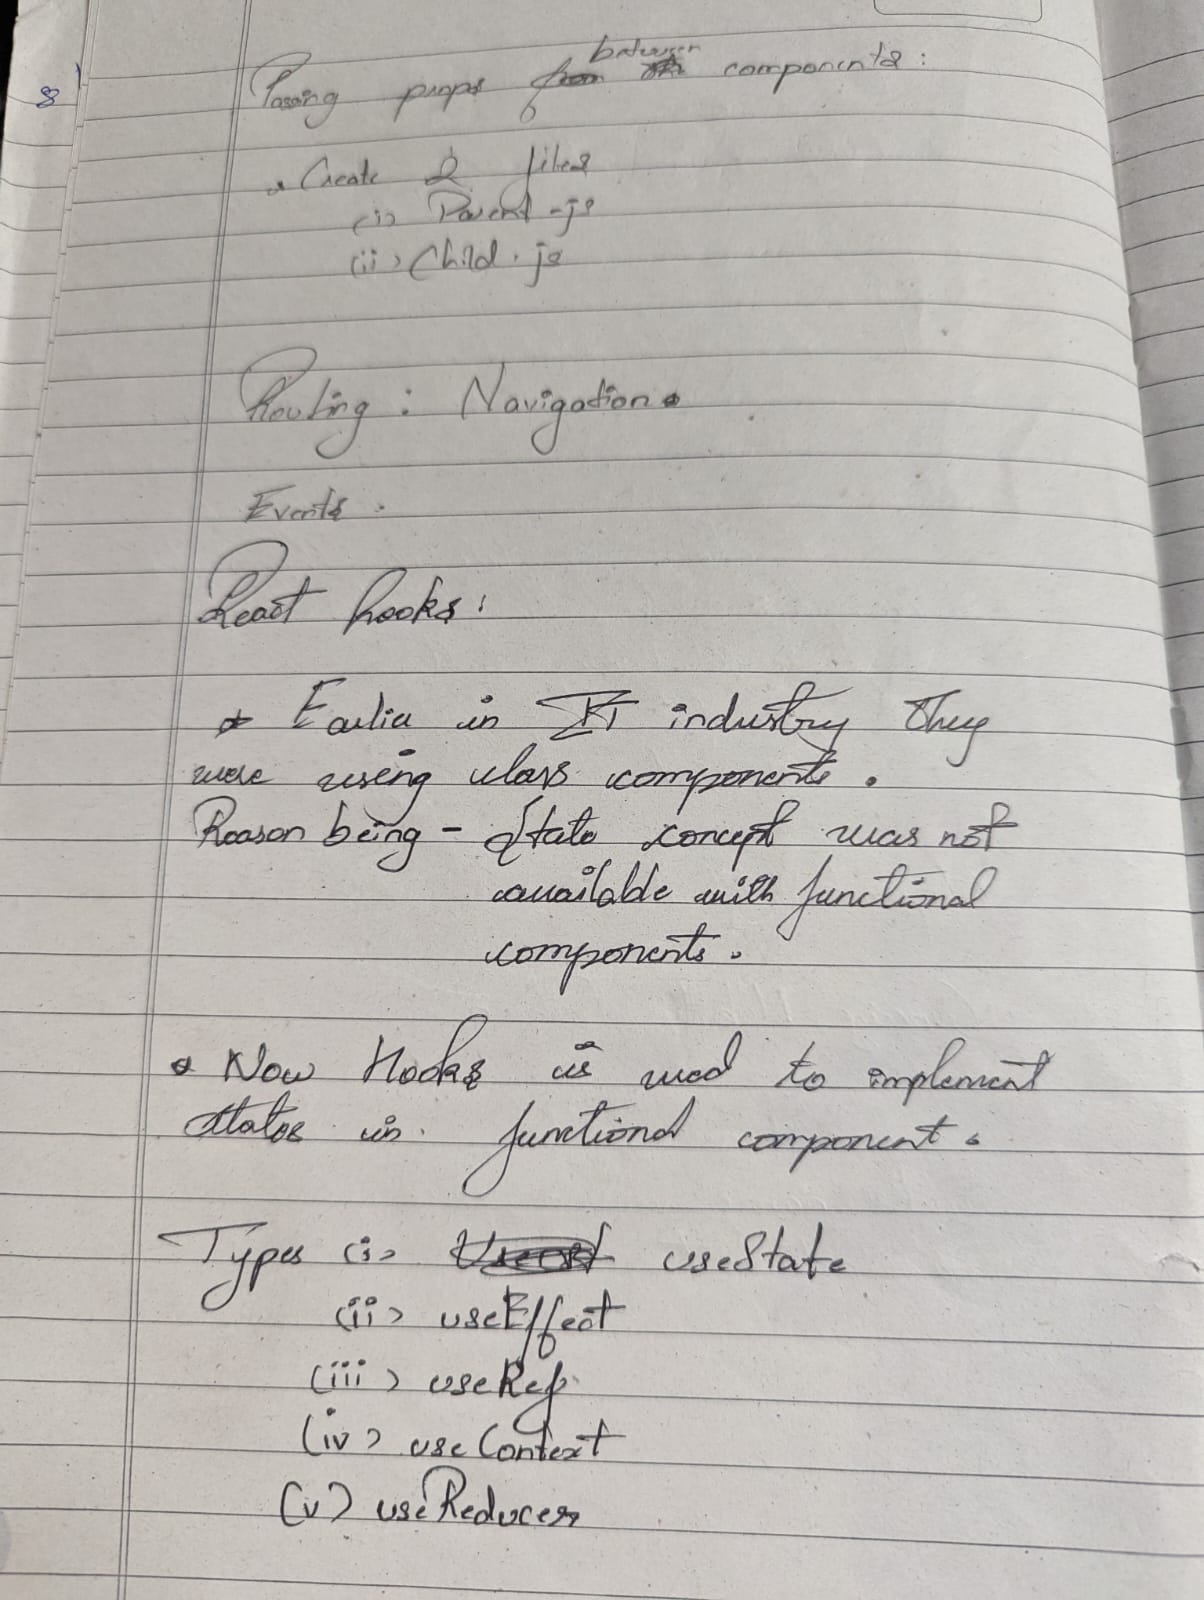 8
Passing props between components:
* Create 2 files
(i) Parent.js
(ii) Child.js
Routing: Navigation.
Events.
React hooks:
* Earlier in IT industry they
were using class components.
Reason being - State concept was not
available with functional
components.
* Now Hooks is used to implement
states in functional component.
Types (i) useState
(ii) useEffect
(iii) useRef
(iv) useContext
(v) useReducer